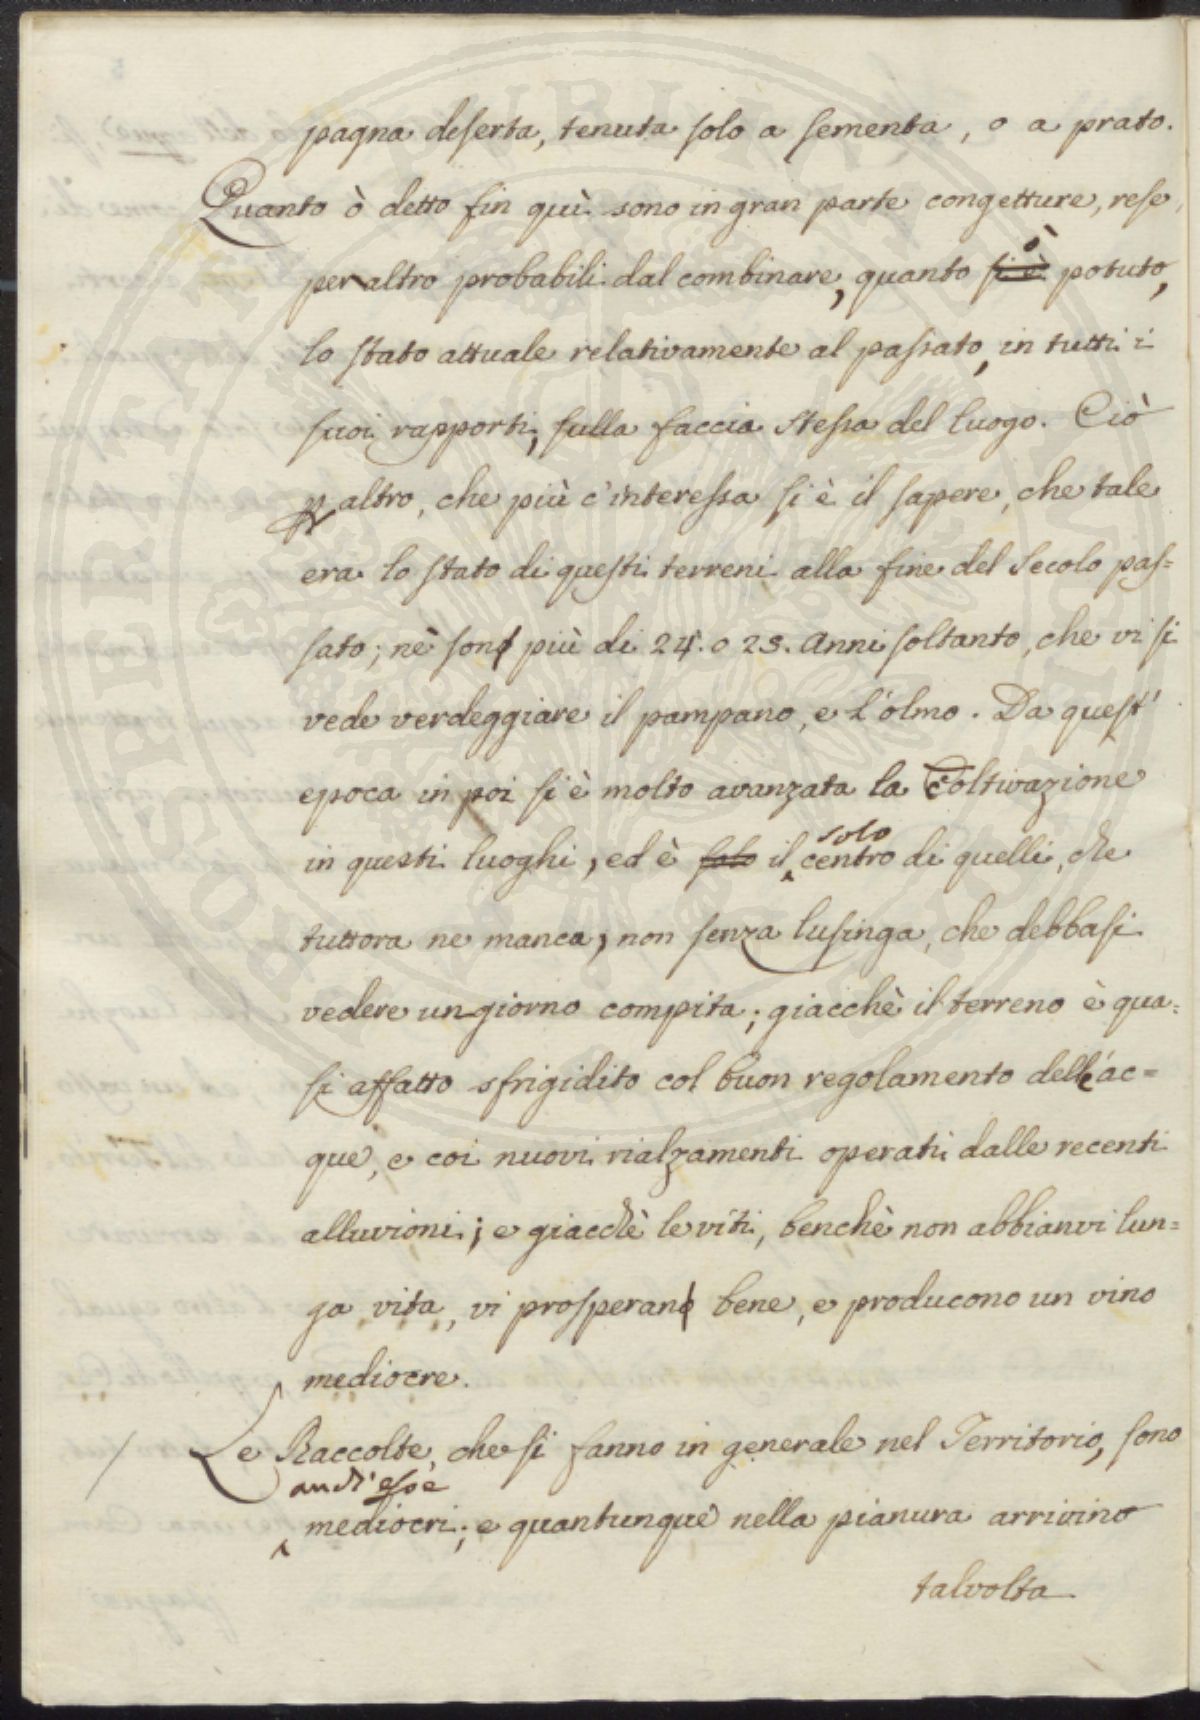 pagna deserta, tenuta solo a sementa, o a prato.
Quanto ò detto fin quì sono in gran parte congetture, rese
per altro probabili dal combinare, quanto ~~si è~~ ò potuto,
lo stato attuale relativamente al passato, in tutti i
suoi rapporti, sulla faccia stessa del luogo. Ciò
per altro, che più c'interessa si è il sapere, che tale
era lo stato di questi terreni alla fine del Secolo pas=
sato; nè son più di 24. o 25. Anni soltanto, che vi si
vede verdeggiare il pampano, e l'olmo. Da quest'
epoca in poi si è molto avanzata la Coltivazione
in questi luoghi, ed è ~~solo~~ il solo centro di quelli, che
tuttora ne manca, non senza lusinga, che debbasi
vedere un giorno compita; giacchè il terreno è qua=
si affatto sfrigidito col buon regolamento delle ac=
que, e coi nuovi rialzamenti operati dalle recenti
alluvioni; e giacchè le viti, benchè non abbianvi lun=
ga vita, vi prosperan bene, e producono un vino
mediocre.
Le Raccolte, che si fanno in generale nel Territorio, sono
anch'esse
mediocri; e quantunque nella pianura arrivino
talvolta